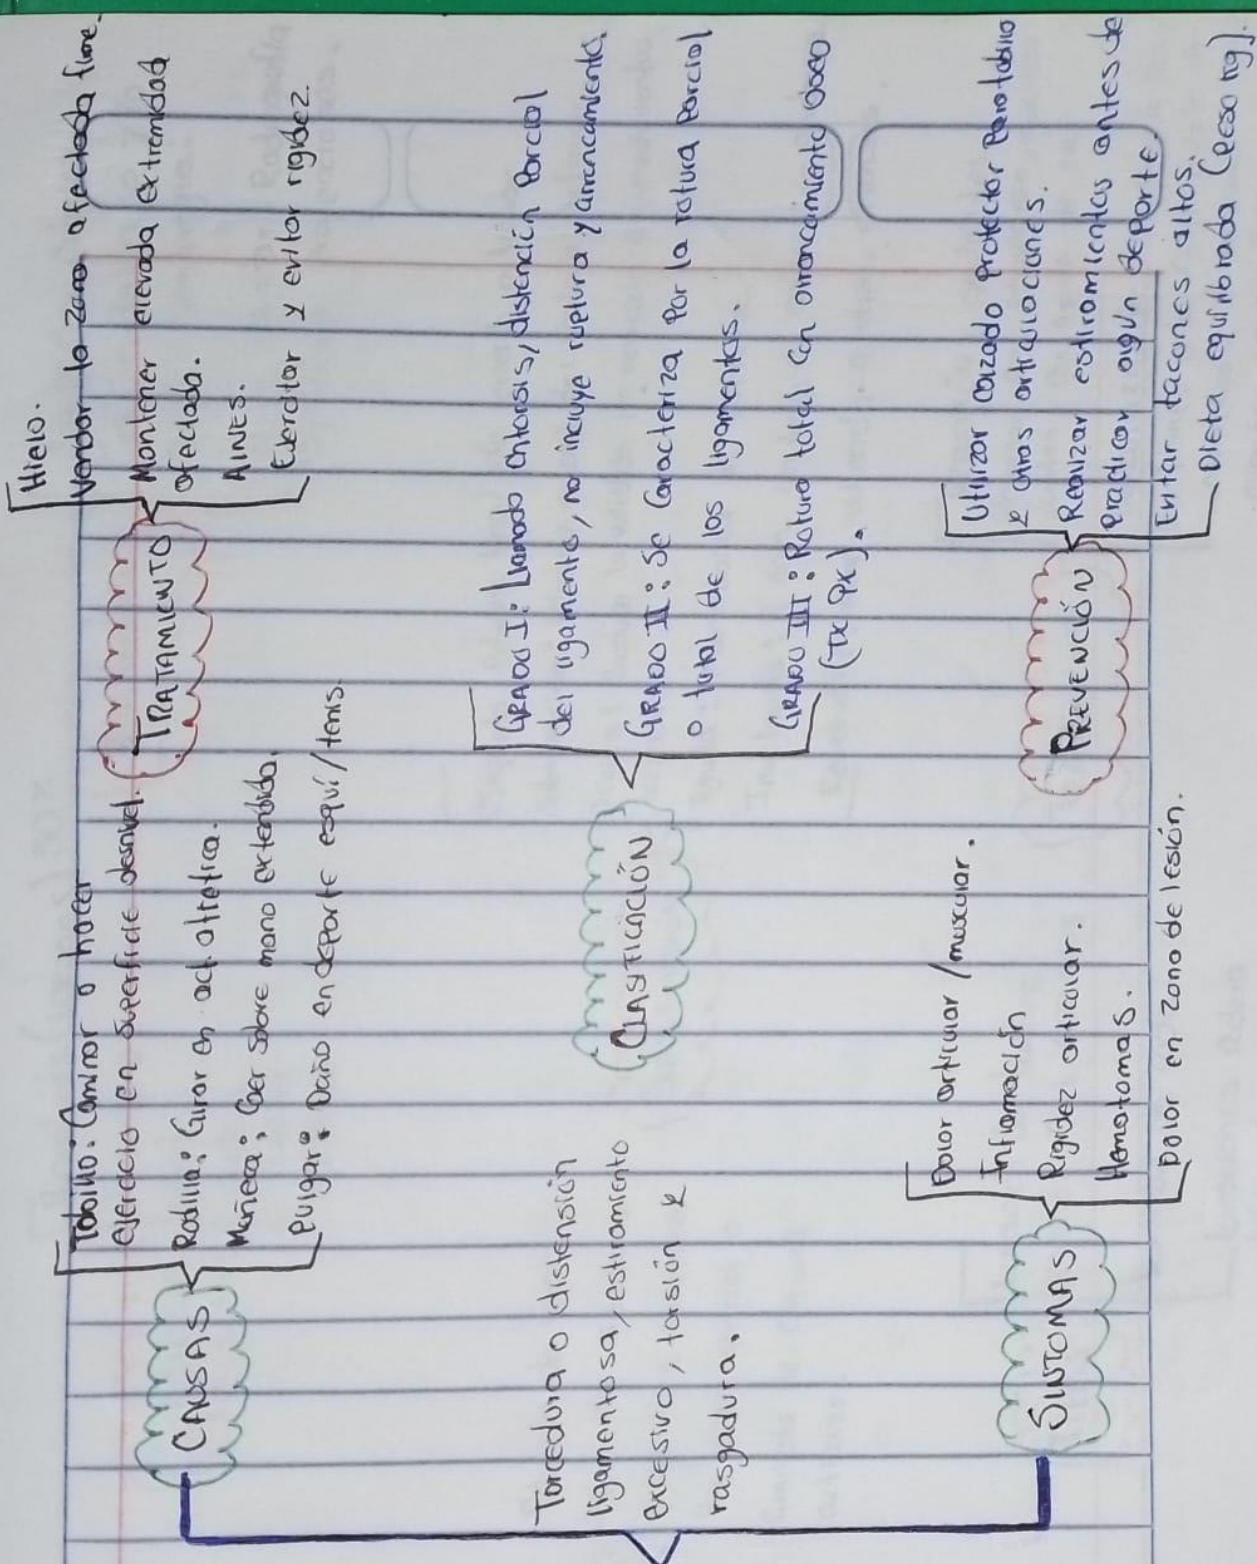 CAUSAS
Tobillo: Caminar o hacer
ejercicio en superficie desnivel.
Rodilla: Girar en act. atletica.
Muñeca: Caer sobre mano extendida.
Pulgar: Daño en deporte esquí/tenis.
TRATAMIENTO
Hielo.
Vendar la zona afectada firme.
Mantener elevada extremidad
afectada.
AINES.
Ejercitar y evitar rigidez
Torcedura o distensión
ligamentosa, estiramiento
excesivo, torsión y
rasgadura.
CLASIFICACIÓN
GRADO I: Llamado entorsis, distención Parcial
del ligamento, no incluye ruptura y arrancamiento.
GRADO II: Se Caracteriza Por la rotura Parcial
o total de los ligamentos.
GRADO III: Rotura total con arrancamiento óseo
(Tx Qx).
SINTOMAS
Dolor articular /muscular.
Inflamación
Rigidez articular.
Hematomas.
Dolor en zona de lesión.
PREVENCIÓN
Utilizar calzado Protector Para tobillo
y otras articulaciones.
Realizar estiramientos antes de
Practicar algún deporte.
Evitar tacones altos.
Dieta equilibrada (peso kg).